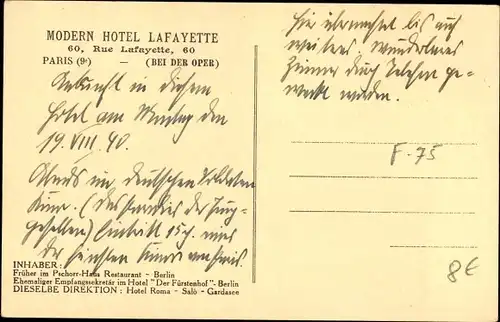 MODERN HOTEL LAFAYETTE
60, Rue Lafayette, 60
PARIS (9e) — (BEI DER OPER)
Ankunft in diesem
Hotel am Montag den
19. VIII. 40.
Abends im deutschen Soldaten
Kino. (Das Paradies der Jung-
gesellen) Eintritt
der schönsten Kinos von Paris.
INHABER:
Früher im Pschorr-Haus Restaurant - Berlin
Ehemaliger Empfangssekretär im Hotel "Der Fürstenhof" - Berlin
DIESELBE DIREKTION : Hotel Roma - Salò - Gardasee
Hier übernachtet bis auf
weiteres. Wunderbares
Zimmer durch Telefon ge-
weckt worden.
F-75
8€